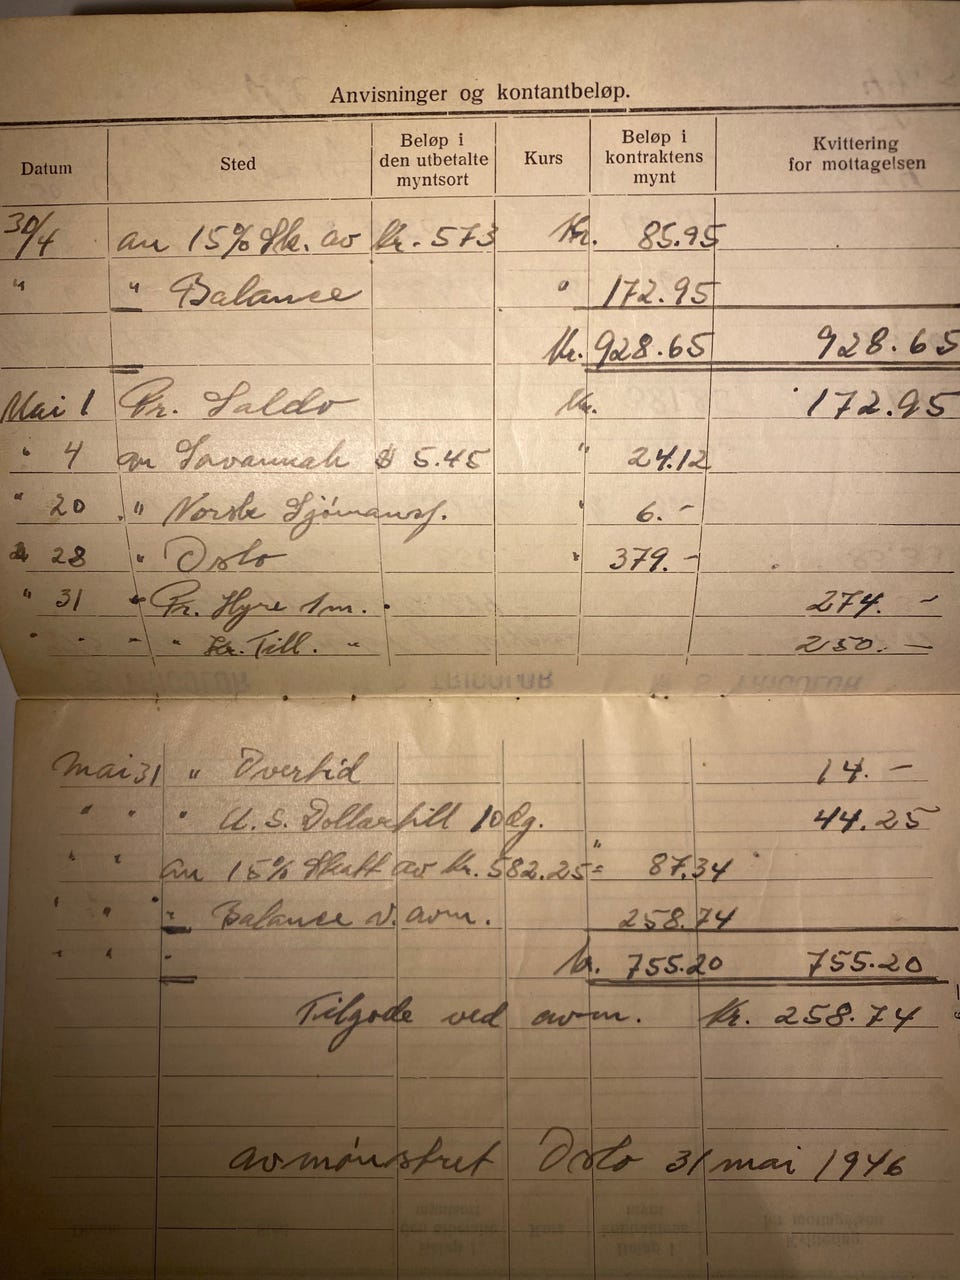 Anvisninger og kontantbeløp.
Datum Sted Beløp i den utbetalte myntsort Kurs Beløp i kontraktens mynt Kvittering for mottagelsen
30/4 an 15% Sk. av Kr. 573 Kr. 85.95
" " Balance " 172.95
Kr. 928.65 928.65
Mai 1 Pr. Saldo Kr. 172.95
" 4 an Savannah $ 5.45 " 24.12
" 20 " Norske Sjømansf. " 6.-
" 28 " Oslo " 379.-
" 31 Pr. Hyre 1 m. 274.-
" " " " Kr. Till. " 250.-
M. S. TRICOLOR
Mai 31 " Overtid 14.-
" " " U.S. Dollartill 10 dg. 44.25
" " an 15% Skatt av Kr. 582.25 = " 87.34
" " " Balance v. avm. 258.74
" " " kr. 755.20 755.20
Tilgode ved avm. Kr. 258.74
avmønstret Oslo 31 mai 1946